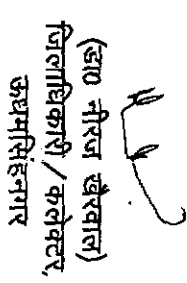 (डा0 नीरज खैरवाल)
जिलाधिकारी / कलेक्टर,
ऊधमसिंहनगर